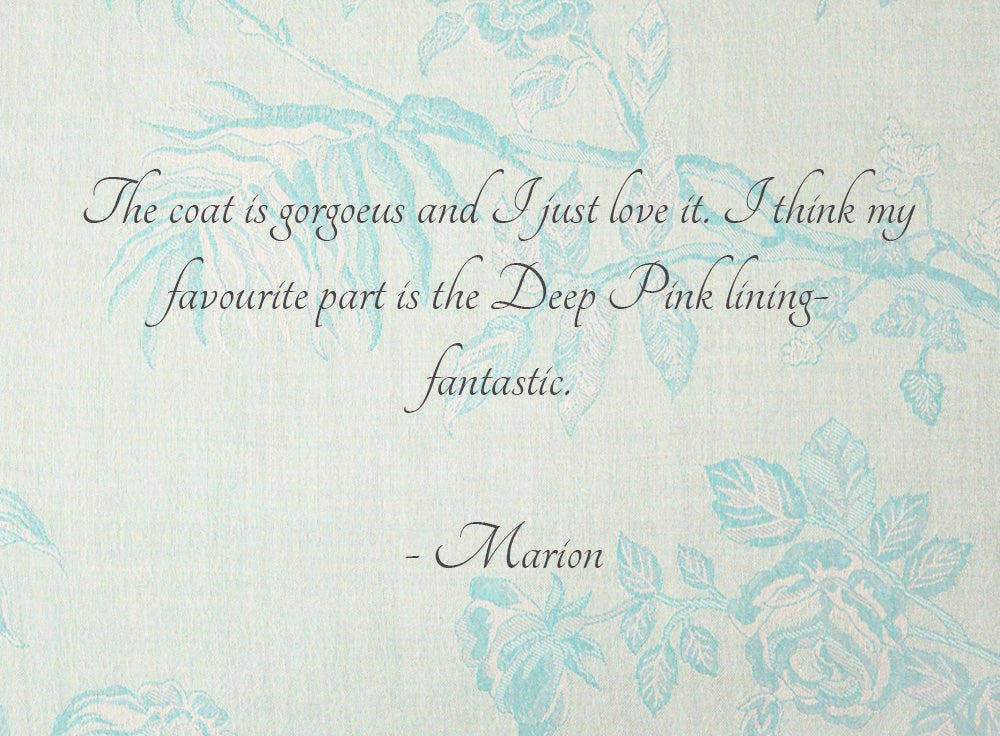 The coat is gorgoeus and I just love it. I think my
favourite part is the Deep Pink lining-
fantastic.
- Marion